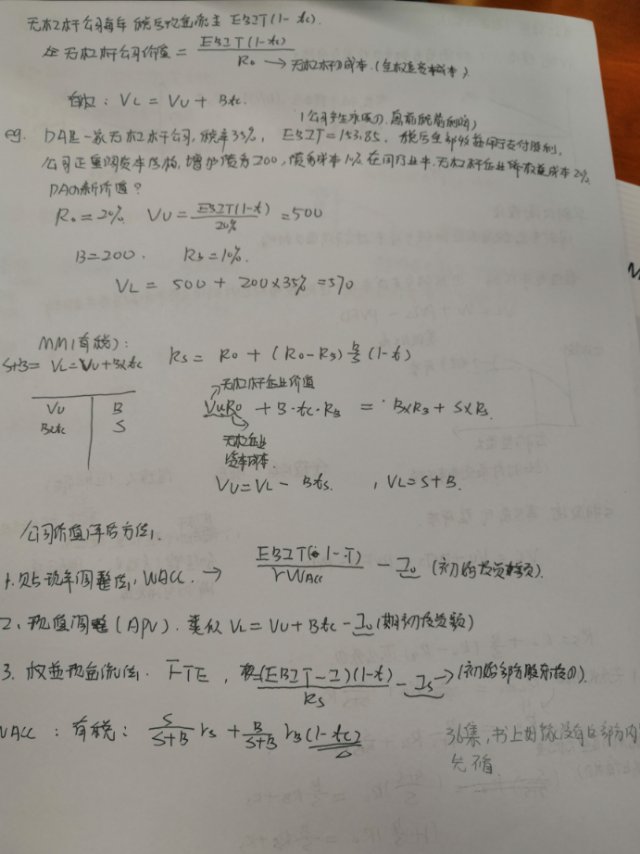 无杠杆公司每年税后现金流是 EBIT(1-tc).
无杠杆公司价值 = EBIT(1-tc) / R₀ → 无杠杆成本 (全权益资本成本)
有税: VL = VU + Btc.
eg. DA是一家无杠杆公司, 税率35%, EBIT = 153.85, 税后全部收益用于支付股利,
公司正重调资本结构, 增加债务200, 债务成本10%, 在同行业中, 无杠杆企业的权益成本20%,
DA的新价值?
R₀ = 20% VU = EBIT(1-t) / 20% = 500
B=200. RB = 10%.
VL = 500 + 200×35% = 570
MM(有税):
S+B = VL = VU + B×tc RS = R₀ + (R₀-RB) B/S (1-t)
无杠杆企业价值
VU B
Btc S
VUR₀ + B·tc·RB = B×RB + S×RS
无杠企业
资本成本
VU = VL - Bts. , VL = S+B.
公司价值评估方法.
1. 贴现率调整法, WACC. → EBIT(1-T) / rWACC - I₀ (初始投资额).
2. 现值调整 (APV). 类似 VL = VU + Btc - I₀ (期初投资额)
3. 权益现金流法. FTE, (EBIT-I)(1-t) / RS - IS → (初始部分股东投的)
WACC: 有税: S/(S+B) rS + B/(S+B) rB (1-tc)
36集, 书上好像没有这部分内